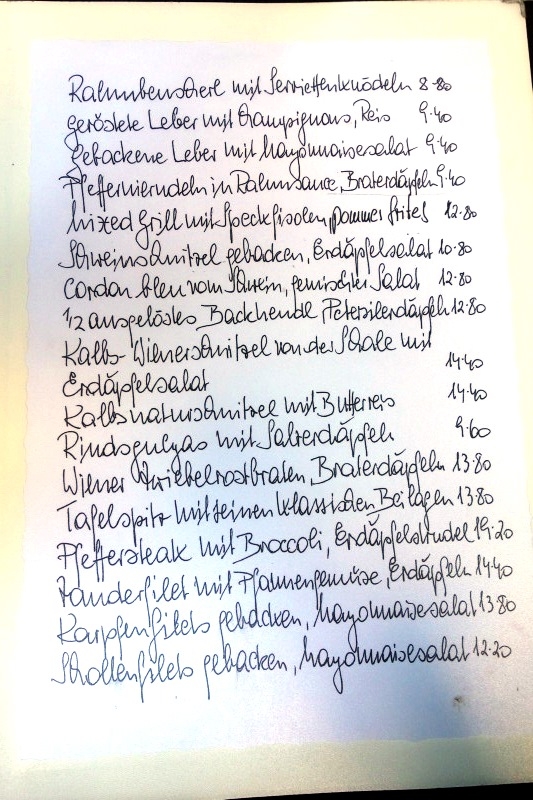 Rahmbeuscherl mit Serviettenknödeln 8.80
geröstete Leber mit Champignons, Reis 9.40
gebackene Leber mit Mayonnaisesalat 9.40
Pfeffernierndeln in Rahmsauce, Braterdäpfeln 9.40
Mixed Grill mit Speckfisolen, pommes frites 12.80
Schweinschnitzel gebacken, Erdäpfelsalat 10.80
Cordon bleu vom Schwein, gemischter Salat 12.80
1/2 ausgelöstes Backhendl, Petersilerdäpfeln 12.80
Kalbs-Wienerschnitzel von der Schale mit
Erdäpfelsalat 14.40
Kalbsnaturschnitzel mit Butterreis 14.40
Rindsgulyas mit Salzerdäpfeln 9.60
Wiener Zwiebelrostbraten, Braterdäpfeln 13.80
Tafelspitz mit seinen klassischen Beilagen 13.80
Pfeffersteak mit Broccoli, Erdäpfelstrudel 19.20
Zanderfilet mit Pfannengemüse, Erdäpfeln 14.40
Karpfenfilets gebacken, Mayonnaisesalat 13.80
Schollenfilets gebacken, Mayonnaisesalat 12.20